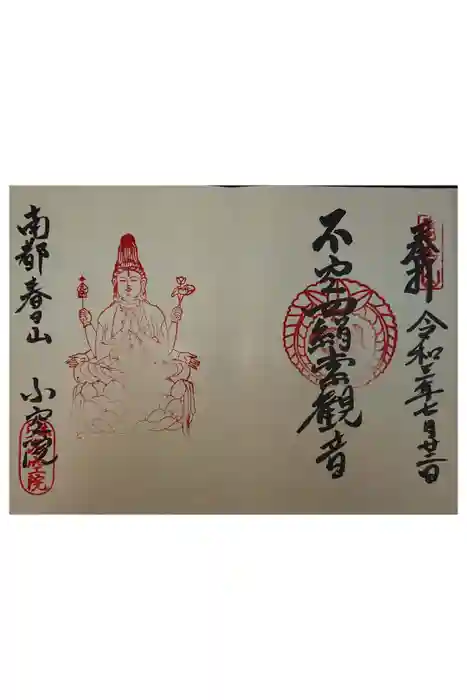 奉拝 令和二年七月廿二日
不空羂索観音
南都春日山 不空院